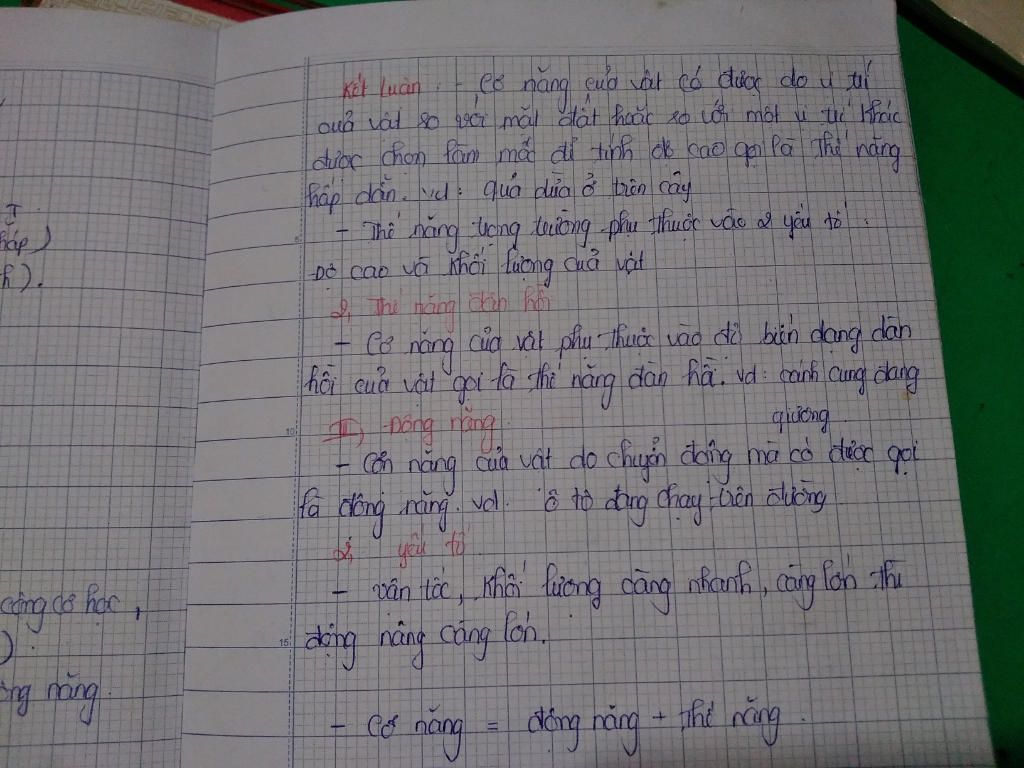 T
hấp)
h).
công cơ học,
).
ộng năng.
Kết luận. - Cơ năng của vật có được do vị trí
của vật so với mặt đất hoặc so với một vị trí khác
được chọn làm mốc để tính độ cao gọi là thế năng
hấp dẫn. vd: quả dừa ở trên cây
- Thế năng trọng trường phụ thuộc vào 2 yếu tố:
Độ cao và khối lượng của vật
2, Thế năng đàn hồi
- Cơ năng của vật phụ thuộc vào độ biến dạng đàn
hồi của vật gọi là thế năng đàn hồi. vd: cánh cung đang
giương
10
III, Động năng.
- Cơn năng của vật do chuyển động mà có được gọi
là động năng. vd. ô tô đang chạy trên đường
2, yếu tố
- vận tốc, khối lượng càng nhanh, càng lớn thì
15
động năng càng lớn.
- Cơ năng = động năng + thế năng.